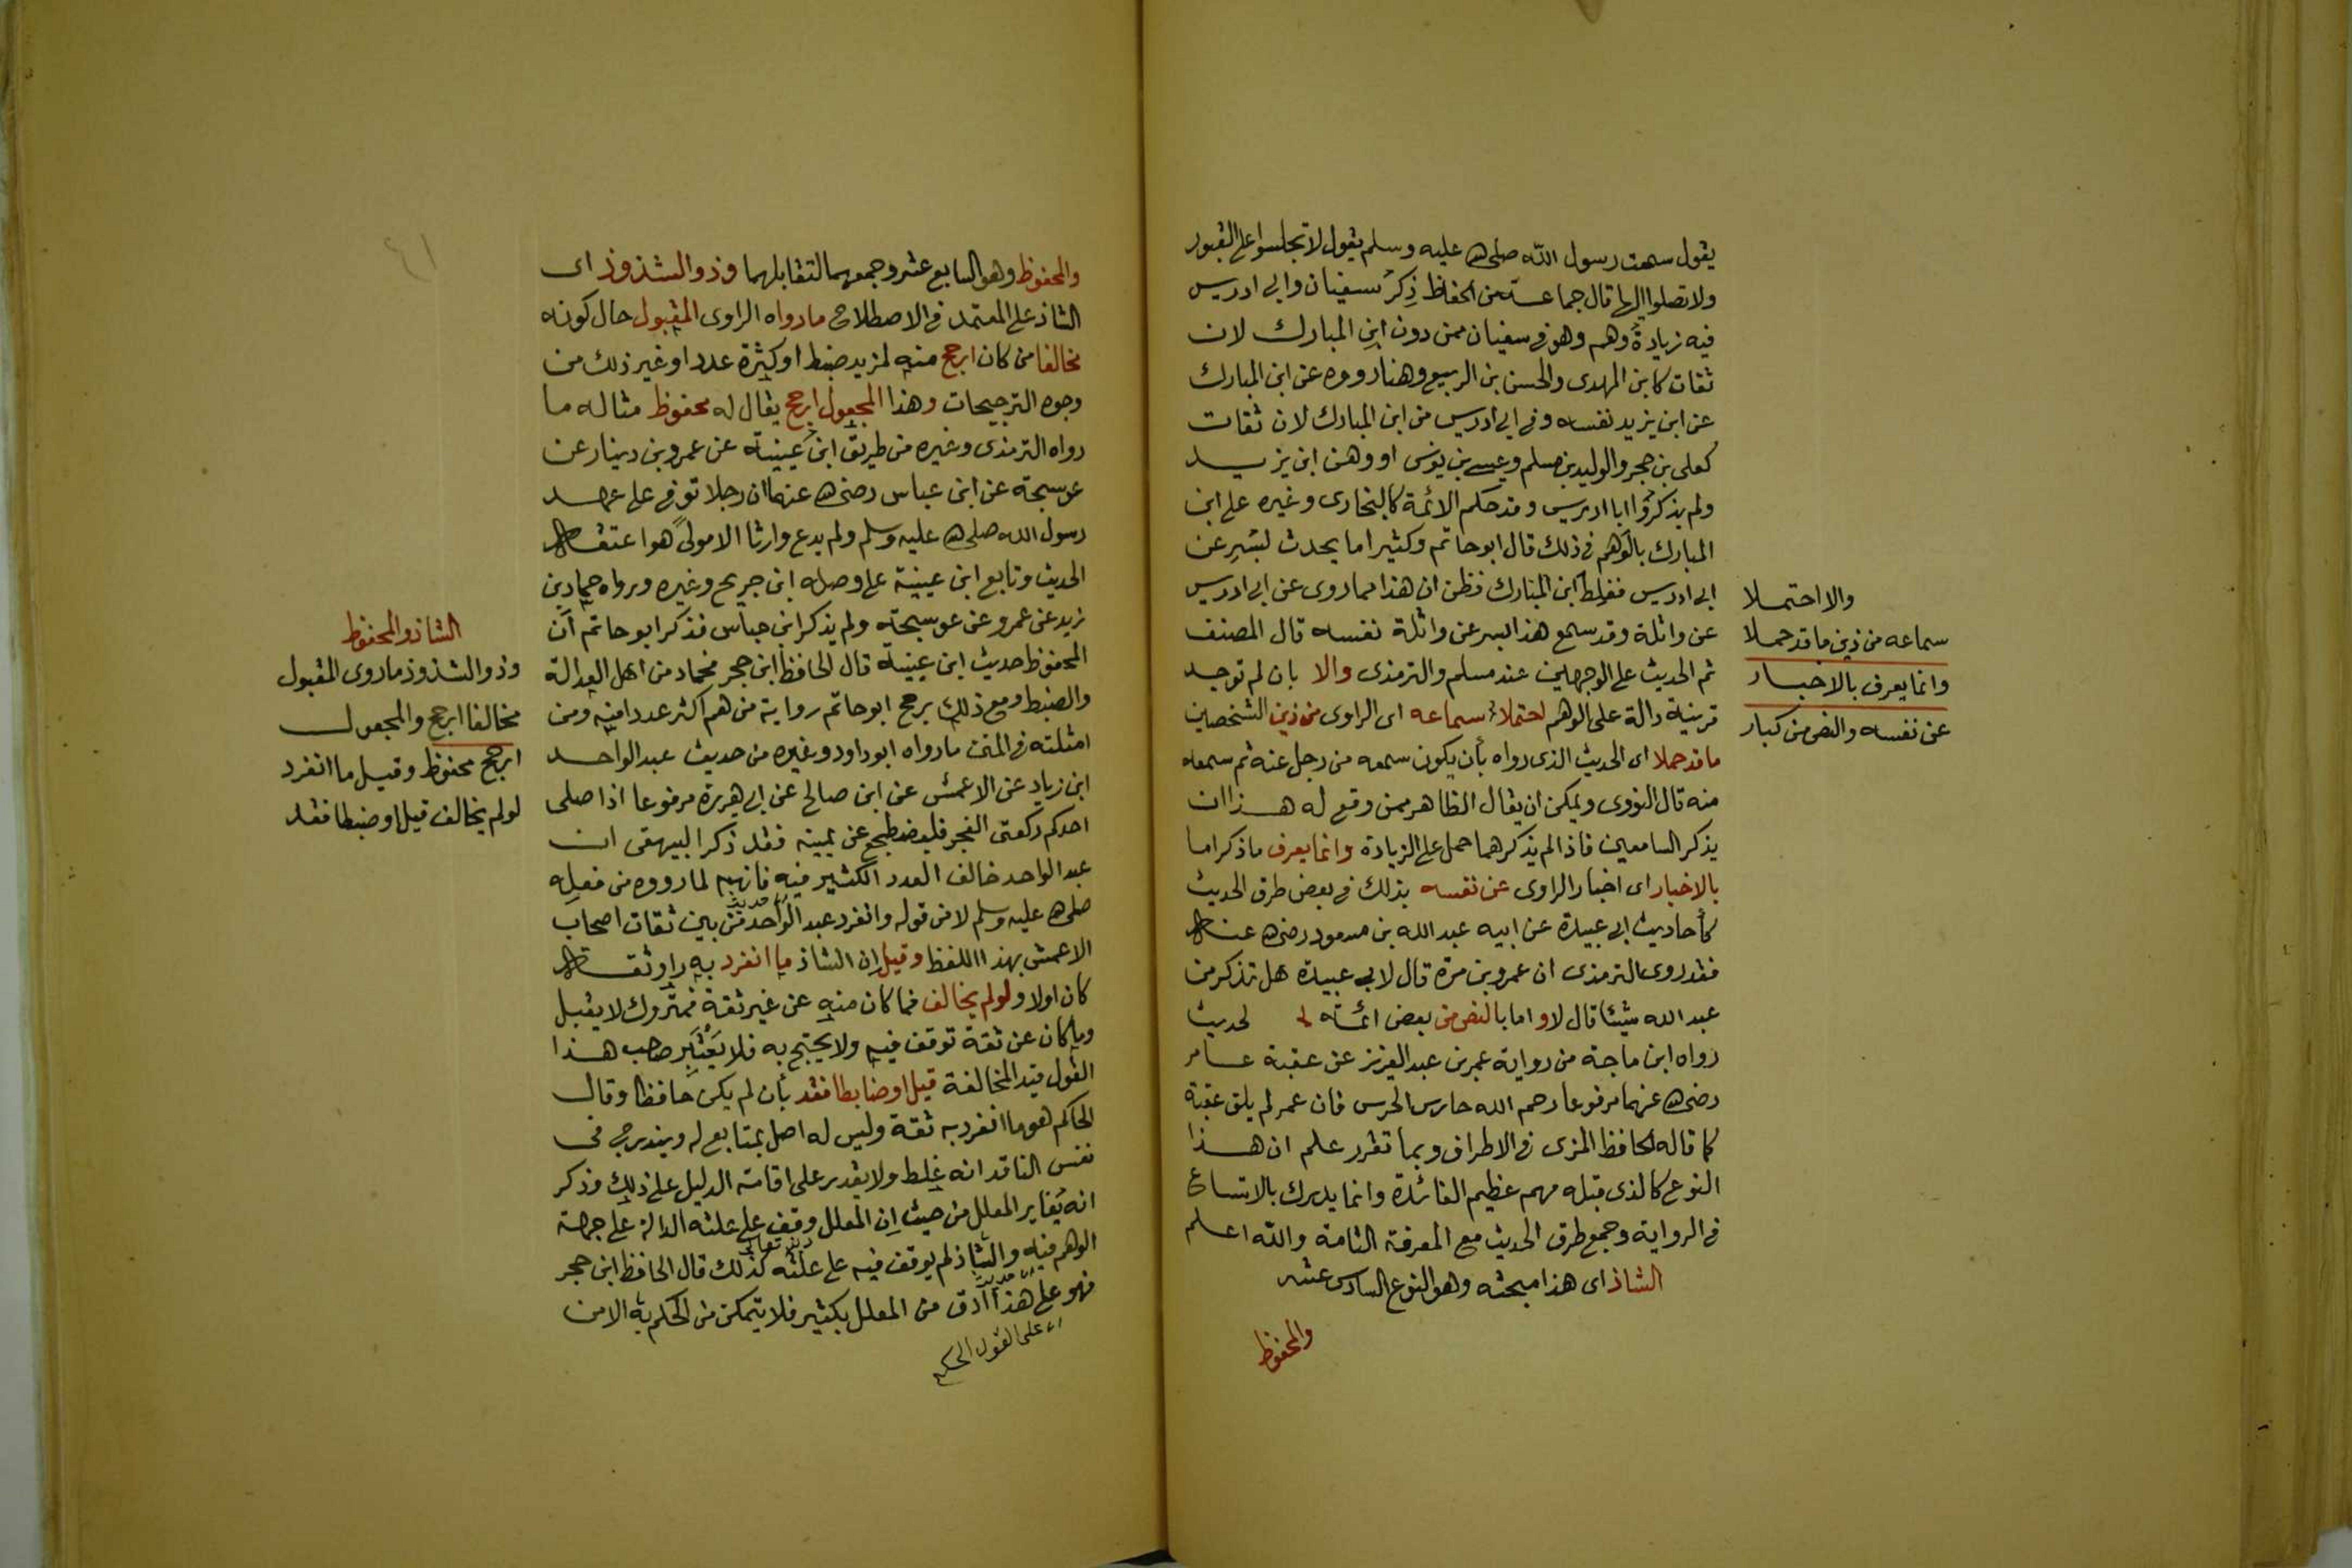 يقول سمعت رسول الله صلى الله عليه وسلم يقول لا تجلسوا على القبور
ولا تصلوا اليها قال جماعة من الحفاظ ذِكرُ سفيان وابي ادريس
فيه زيادة وهم وهو في سفيان ممن دون ابن المبارك لان
ثقات كابن المهدى والحسن بن الربيع وهناد رووه عن ابن المبارك
عن ابن يزيد نفسه وفي ابي ادريس من ابن المبارك لان ثقات
كعلى بن حجر والوليد بن مسلم وعيسى بن يونس رووه عن ابن يزيد
ولم يذكروا ابا ادريس وقد حكم الائمة كالبخارى وغيره على ابن
المبارك بالوهم في ذلك قال ابو حاتم وكثيرا ما يحدث بسر عن
ابي ادريس فغلط ابن المبارك فظن ان هذا مما روى عن ابي ادريس
عن واثلة وقد سمع هذا بسر عن واثلة نفسه قال المصنف
ثم الحديث على الوجهين عند مسلم والترمذى والا بان لم توجد
قرينة دالة على الوهم احتملا سماعه اى الراوى من ذين الشخصين
ما قد حملا اى الحديث الذى رواه بأن يكون سمعه من رجل عنه ثم سمعه
منه قال النووى ويمكن ان يقال الظاهر ممن وقع له هذا ان
يذكر السامعين فاذا لم يذكرهما حمل على الزيادة وانما يعرف ما ذكر اما
بالاخبار اى اخبار الراوى عن نفسه بذلك في بعض طرق الحديث
كأحاديث ابي عبيدة عن ابيه عبد الله بن مسعود رضى الله عنه
فقد روى الترمذى ان عمرو بن مرة قال لابي عبيدة هل تذكر من
عبد الله شيئا قال لا واما بالنص من بعض ائمته لحديث
رواه ابن ماجة من رواية عمر بن عبد العزيز عن عقبة عامر
رضى الله عنهما مرفوعا رحم الله حارس الحرس فان عمر لم يلق عقبة
كما قاله الحافظ المزى في الاطراف وبما تقرر علم ان هذا
النوع كالذى قبله مهم عظيم الفائدة وانما يدرك بالاتساع
في الرواية وجمع طرق الحديث مع المعرفة التامة والله اعلم
الشاذ اى هذا مبحثه وهو النوع السادس عشر
والمحفوظ
والا احتملا
سماعه من ذين ما قد حملا
وانما يعرف بالاخبار
عن نفسه والنص من كبار
٤١
والمحفوظ وهو السابع عشر وجمعهما لتقابلهما وذو الشذوذ اى
الشاذ على المعتمد في الاصطلاح ما رواه الراوى المقبول حال كونه
مخالفا من كان ارجح منه لمزيد ضبط او كثرة عدد او غير ذلك من
وجوه الترجيحات وهذا المجعول ارجح يقال له محفوظ مثاله ما
رواه الترمذى وغيره من طريق ابن عيينة عن عمرو بن دينار عن
عوسجة عن ابن عباس رضى الله عنهما ان رجلا توفي على عهد
رسول الله صلى الله عليه وسلم ولم يدع وارثا الا مولى هو اعتقه
الحديث وتابع ابن عيينة على وصله ابن جريج وغيره ورواه حماد بن
زيد عن عمرو عن عوسجة ولم يذكر ابن عباس فذكر ابو حاتم ان
المحفوظ حديث ابن عيينة قال الحافظ ابن حجر فحماد من اهل العدالة
والضبط ومع ذلك يرجح ابو حاتم رواية من هم اكثر عددا منه ومن
امثلته في المتن ما رواه ابو داود وغيره من حديث عبد الواحد
ابن زياد عن الاعمش عن ابن صالح عن ابي هريرة مرفوعا اذا صلى
احدكم ركعتى الفجر فليضطجع عن يمينه فقد ذكر البيهقى ان
عبد الواحد خالف العدد الكثير فيه فانهم لما رووه من فعله
صلى الله عليه وسلم لا من قوله وانفرد عبد الواحد من بين ثقات اصحاب
الاعمش بهذا اللفظ وقيل ان الشاذ ما انفرد به راو ثقة
كان اولا ولو لم يخالف فما كان منه عن غير ثقة فمتروك لا يقبل
وما كان عن ثقة توقف فيه ولا يحتج به فلا يَعْتَبِر صاحب هذا
القول قيد المخالفة قيل او ضابطا فقد بأن لم يكن حافظا وقال
الحاكم هو ما انفرد به ثقة وليس له اصل بمتابع له وينقدح في
نفس الناقد انه غلط ولا يقدر على اقامة الدليل على ذلك وذكر
انه يغاير المعلل من حيث ان المعلل وقف على علته الدالة على جهة
الوهم فيه والشاذ لم يوقف فيه على علته كذلك قال الحافظ ابن حجر
فهو على هذا ادق من المعلل بكثير فلا يتمكن من الحكم به الا من
على القول الحكم
الشاذ والمحفوظ
وذو الشذوذ ما روى المقبول
مخالفا ارجح والمجعول
ارجح محفوظ وقيل ما انفرد
لو لم يخالف قيل او ضبطا فقد